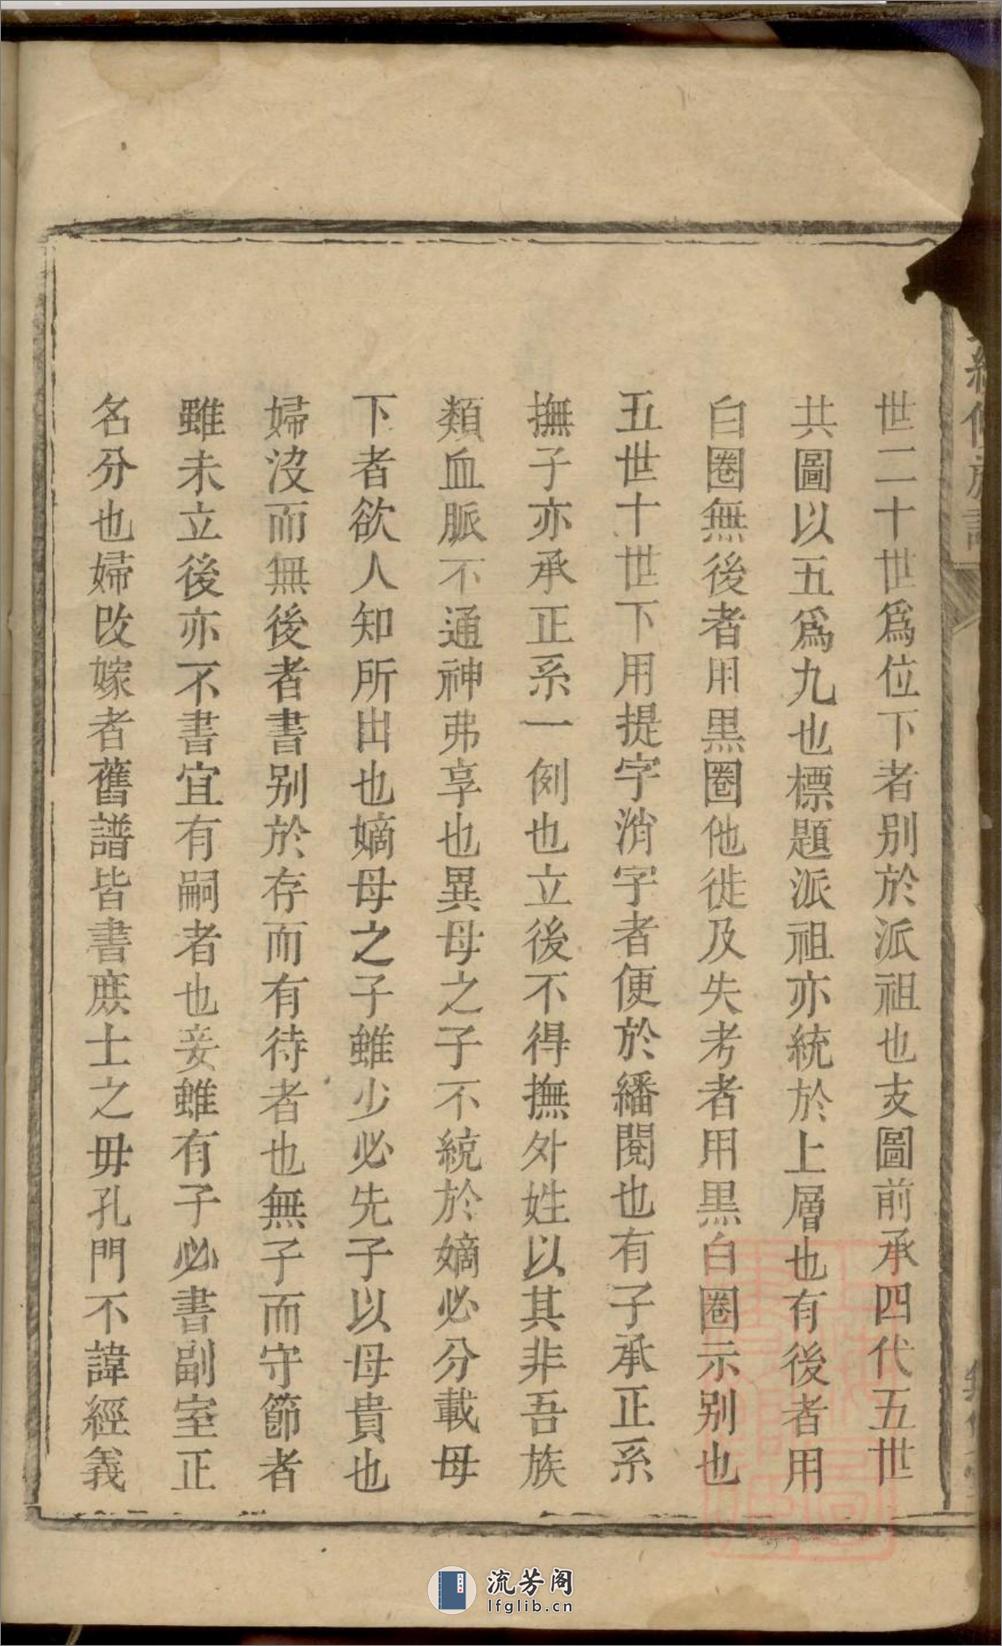 世二十世爲位下者别於派祖也支圖前承四代五世
共圖以五爲九也標題派祖亦統於上層也有後者用
白圈無後者用黑圈他徙及失考者用黑白圈示别也
五世十世下用提字消字者便於繙閱也有子承正系
撫子亦承正系一例也立後不得撫外姓以其非吾族
類血脈不通神弗享也異母之子不統於嫡必分載母
下者欲人知所出也嫡母之子雖少必先子以母貴也
婦沒而無後者書别於存而有待者也無子而守節者
雖未立後亦不書宜有嗣者也妾雖有子必書副室正
名分也婦改嫁者舊譜皆書庶士之母孔門不諱經義
流芳阁
lfglib.cn